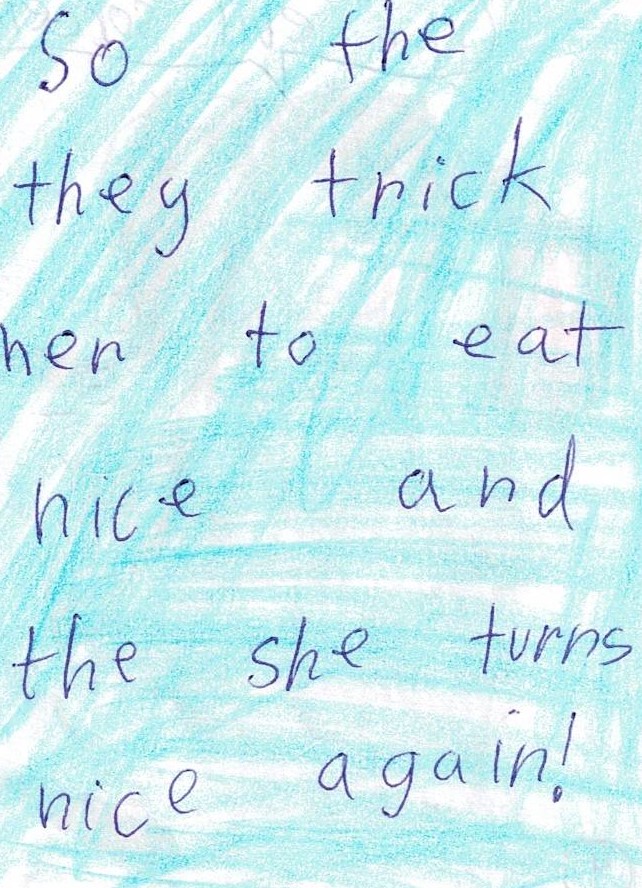 So the
they trick
her to eat
nice and
the she turns
nice again!